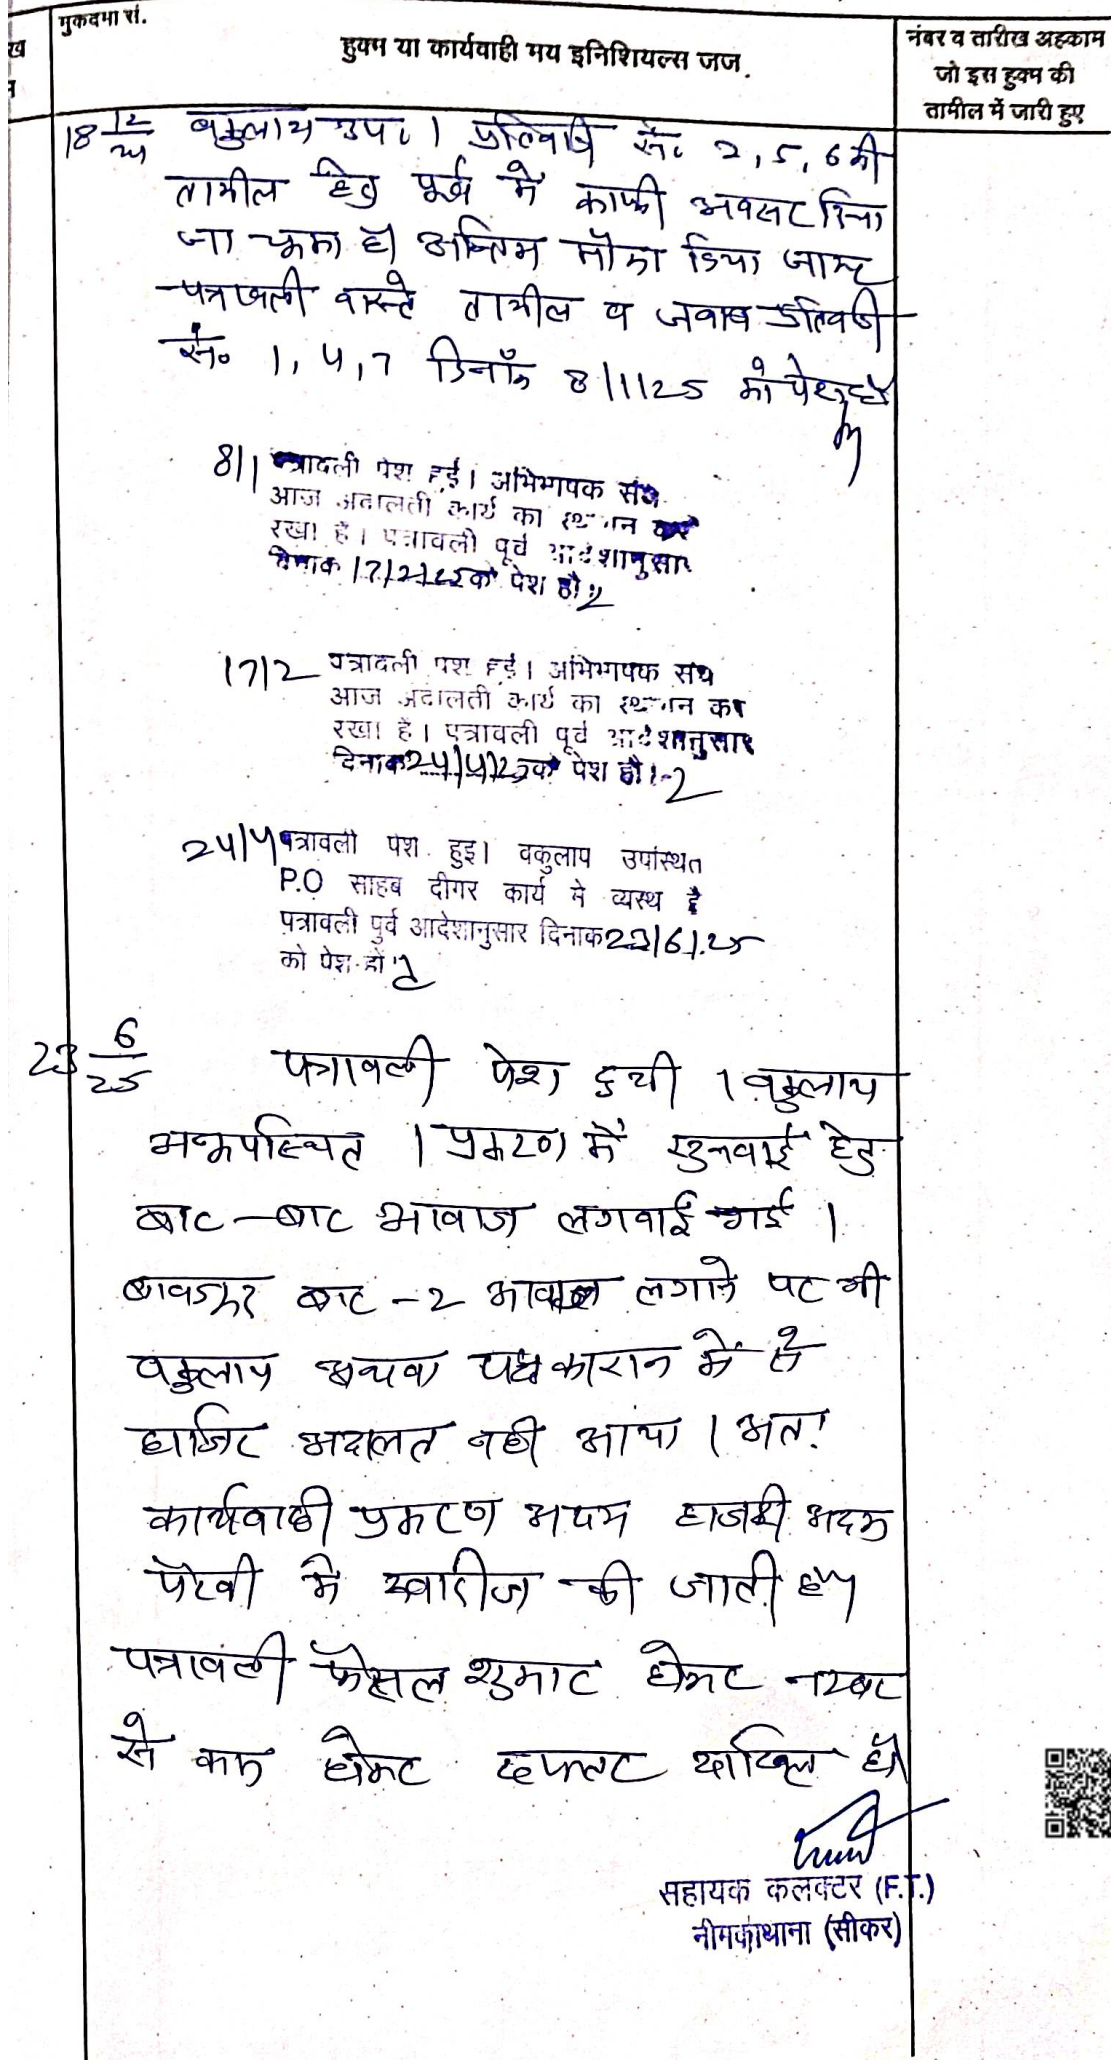 मुकदमा सं.
ख
हुक्म या कार्यवाही मय इनिशियल्स जज.
नंबर व तारीख अहकाम
जो इस हुक्म की
तामील में जारी हुए
18 12/24 वकुलाय उप० । प्रतिवादी सं० 2, 5, 6 की
तामील हेतु पूर्व में काफी अवसर दिया
जा चुका है। अन्तिम मौका दिया जाकर
पत्रावली वास्ते तामील व जवाब प्रतिवादी
सं० 1, 4, 7 दिनाँक 8/1/25 को पेश हो
8/1 पत्रावली पेश हुई। अभिभाषक संघ
आज अदालती कार्य का स्थगन कर
रखा है। पत्रावली पूर्व आदेशानुसार
दिनाक 17/2/25 को पेश हो।
17/2 पत्रावली पेश हुई। अभिभाषक संघ
आज अदालती कार्य का स्थगन कर
रखा है। पत्रावली पूर्व आदेशानुसार
दिनाक 24/4/25 को पेश हो।
24/4 पत्रावली पेश हुइ। वकुलाप उपस्थित
P.O साहब दीगर कार्य मे व्यस्थ है
पत्रावली पुर्व आदेशानुसार दिनाक 23/6/.25
को पेश हो
23 6/25 पत्रावली पेश हुयी । वकुलाय
अनुपस्थित । प्रकरण में सुनवाई हेतु
बार-बार आवाज लगवाई गई ।
बावजूद बार-2 आवाज लगाने पर भी
वकुलाय अथवा पक्षकारान में से
हाजिर अदालत नही आया । अतः
कार्यवाही प्रकरण अदम हाजरी अदम
पैरवी में खारीज की जाती है।
पत्रावली फैसल शुमार होकर नम्बर
से कम होकर दफ्तर दाखिल हो
सहायक कलक्टर (F.T.)
नीमकाथाना (सीकर)